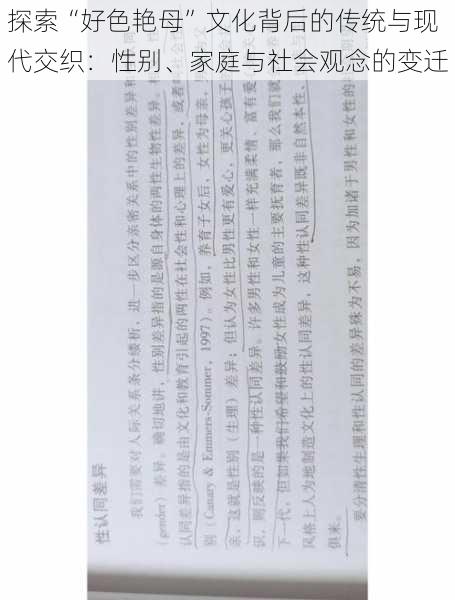 探索“好色艳母”文化背后的传统与现
代交织：性别、家庭与社会观念的变迁
性认同差异
我们需要对人际关系条分缕析，进一步区分亲密关系中的性别差异和
（gender）差异。确切地讲，性别差异指的是源自身体的两性生物性差异。
认同差异指的是由文化和教育引起的两性在社会性和心理上的差异，或者
别（Canary & Emmers-Sommer，1997）。例如，养育子女后，女性为母亲，
亲，这就是性别（生理）差异；但认为女性比男性更有爱心，更关心孩子
识，则反映的是一种性认同差异。许多男性和女性一样充满柔情、富有爱
下一代，但如果我们希望和鼓励女性成为儿童的主要抚育者，那么我们就
风格上人为地制造文化上的性认同差异，这种性认同差异既非自然本性、
俱来。
要分清性生理和性认同的差异殊为不易，因为加诸于男性和女性的